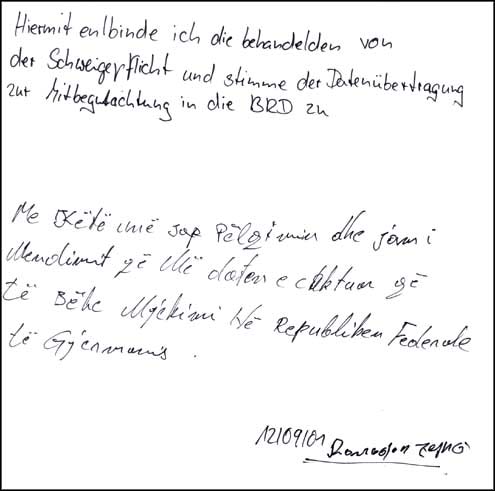 Hiermit enlbinde ich die behandelden von
der Schweigepflicht und stimme der Datenübertragung
zur Mitbegutachtung in die BRD zu
Me Këtë unë jap Pëlqimin dhe jam i
Mendimit që Më daten e caktuar që
të Bëhe Mjekimi Në Republiken Federale
të Gjermanis .
12/09/01